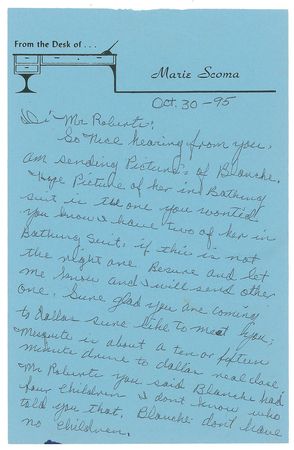 From the Desk of . . .
Marie Scoma
Oct. 30-95
Hi Mr Roberts!
So Nice hearing from you,
am sending Pictures of Blanche.
Hope Picture of her in Bathing
suit is the one you wanted
you know I have two of her in
Bathing Suit, if this is not
the right one. Besure and let
me know and I will send other
one. Sure glad you are coming
to dallas sure like to meet you;
Mesquite is about a ten or fifteen
minute drive to dallas real close.
Mr Roberts you said Blanche had
four children I don't know who
told you that, Blanche don't have
no children.